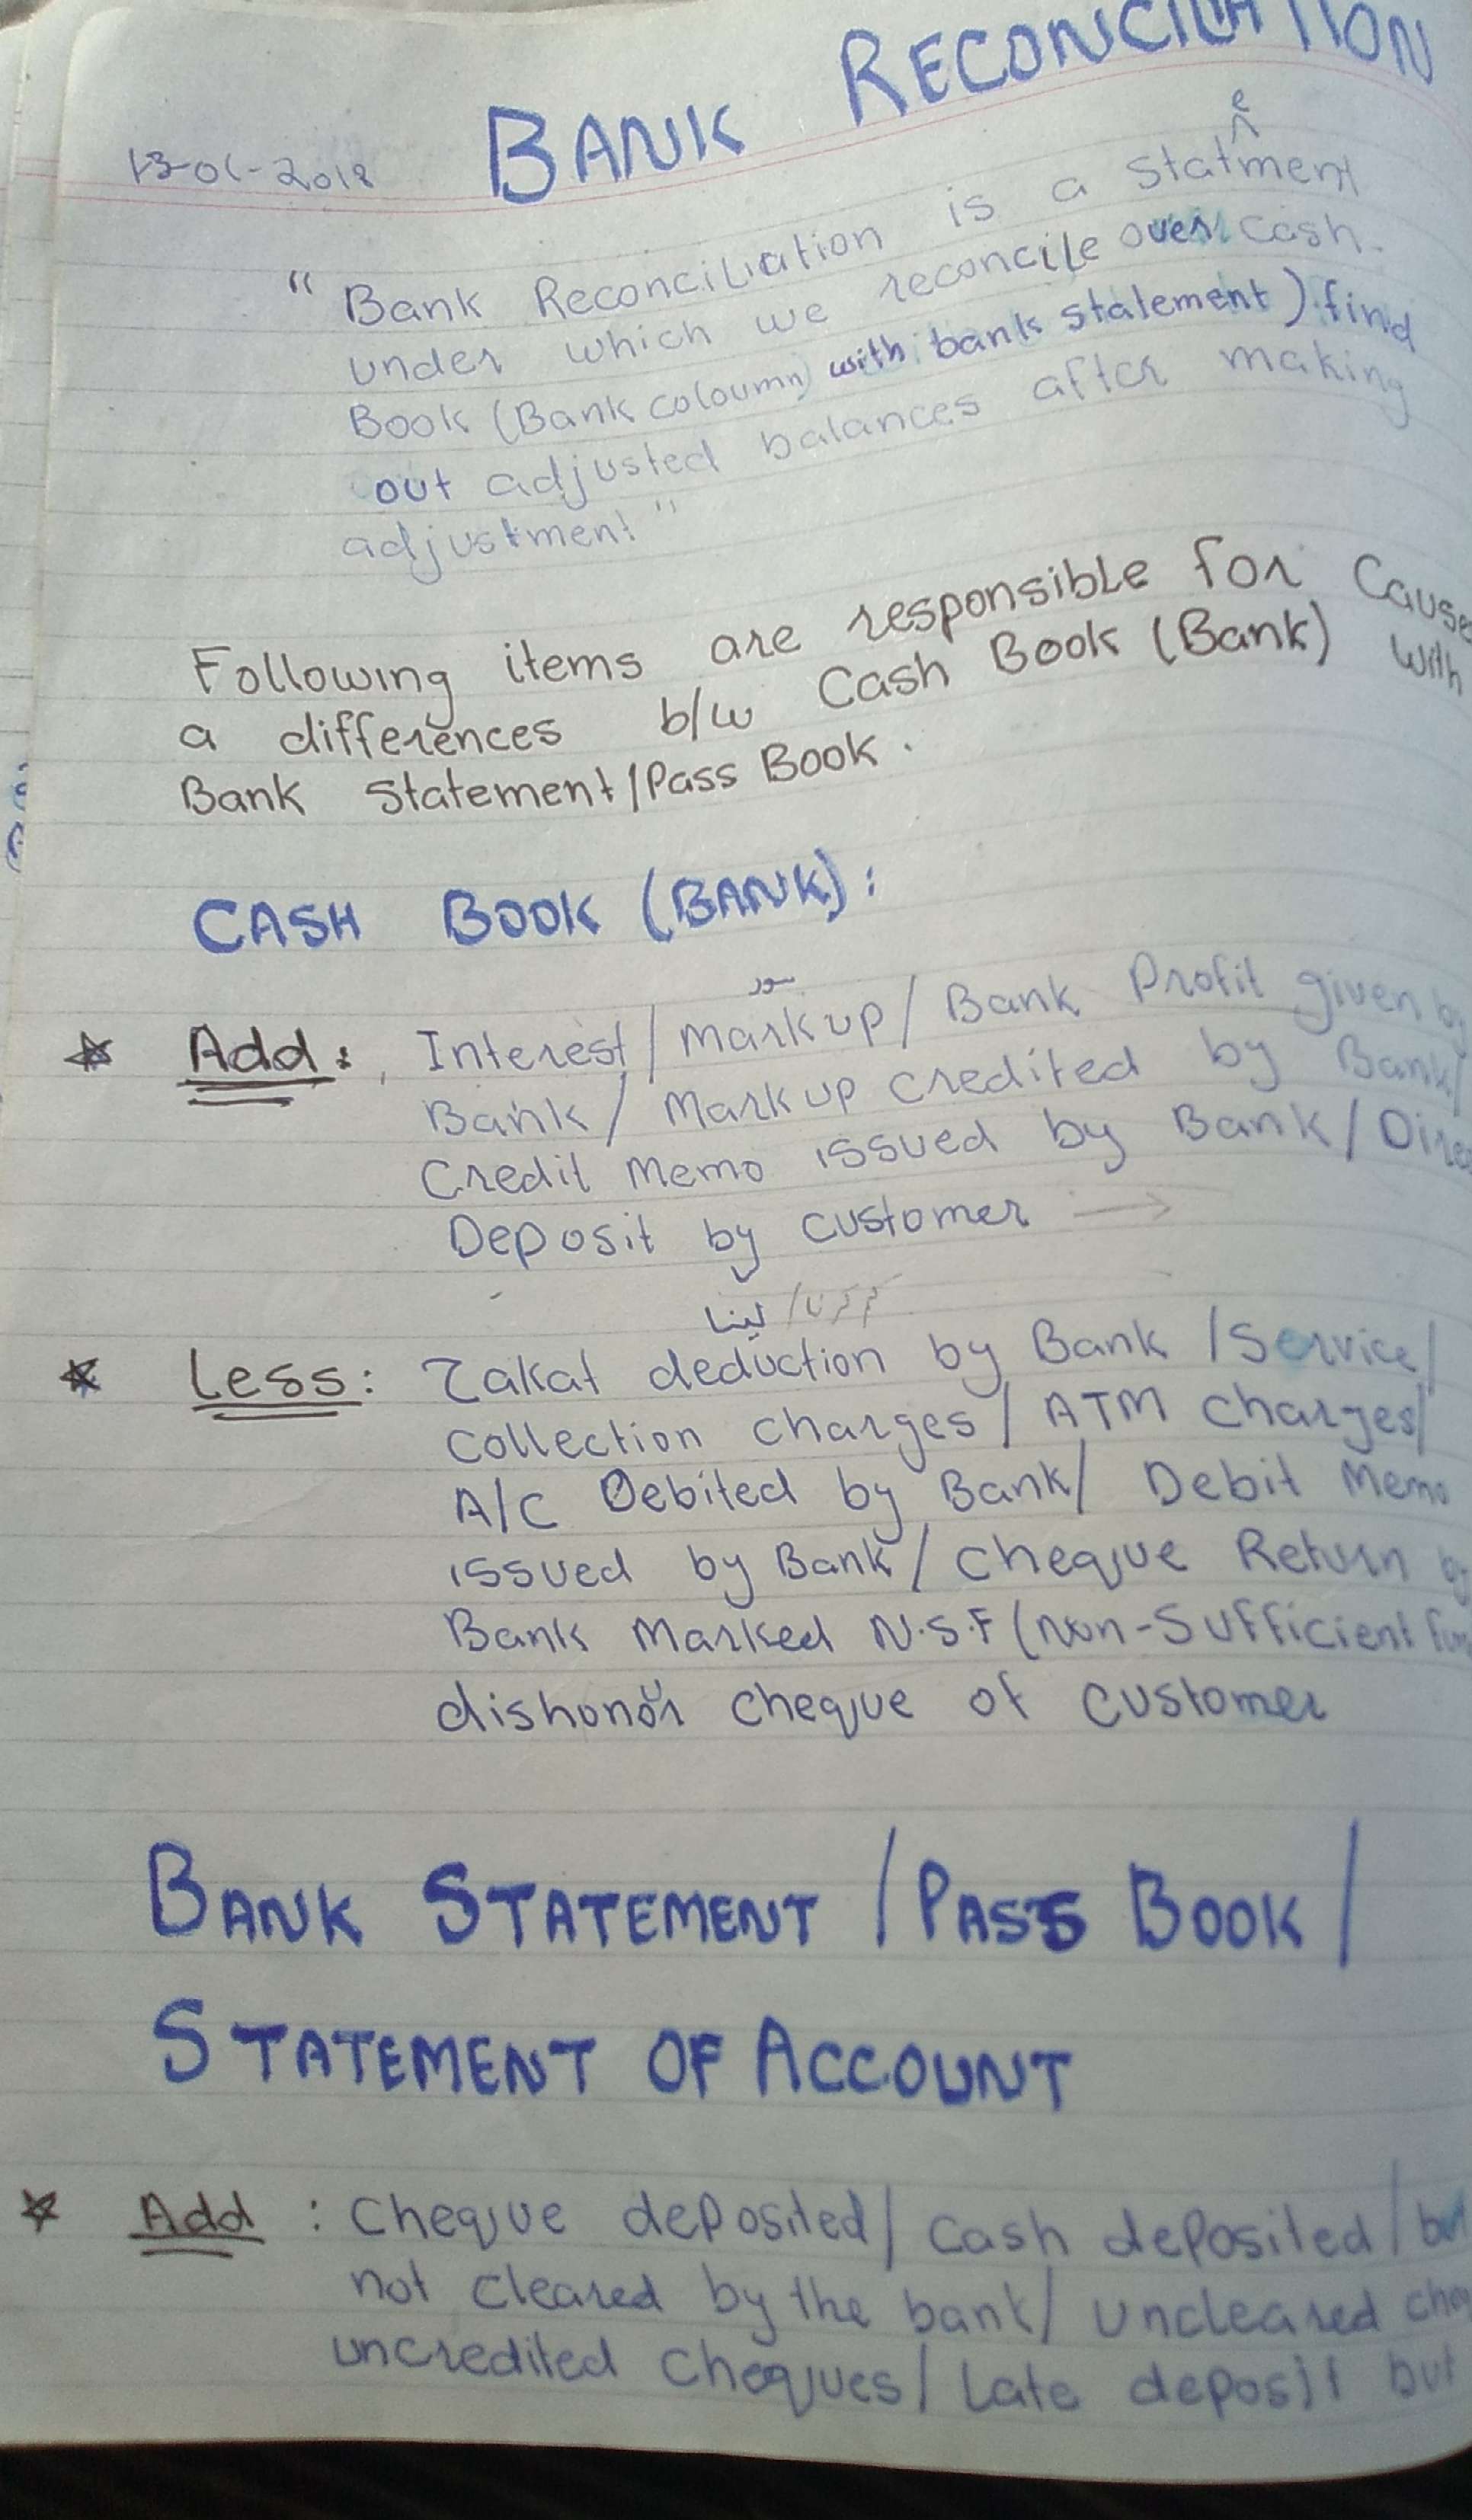 BANK RECONCILIATION
"Bank Reconciliation is a statement
under which we reconcile over cash
Book (Bank coloumn) with bank statement) find
out adjusted balances after making
adjustment"
Following items are responsible for Cause
a differences b/w Cash Book (Bank) with
Bank Statement/Pass Book.
CASH BOOK (BANK):
سود
Add: Interest/Markup/Bank Profit given by
Bank/Markup credited by Bank/
Credit Memo issued by Bank/Direc
Deposit by customer →
لینا
Less: Zakat deduction by Bank/Service/
Collection charges/ATM charges/
A/C Debited by Bank/Debit Memo
issued by Bank/Cheque Return by
Bank Marked N.S.F (Non-Sufficient
dishonour cheque of customer
BANK STATEMENT/PASS BOOK/
STATEMENT OF ACCOUNT
Add: Cheque deposited/Cash deposited/but
not cleared by the bank/uncleared
uncredited Cheques/Late deposit but